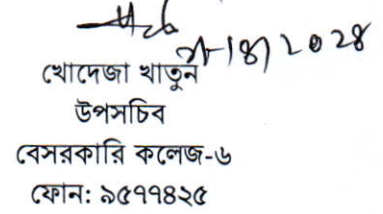 খোদেজা খাতুন
উপসচিব
বেসরকারি কলেজ-৬
ফোন: ৯৫৭৭৪২৫